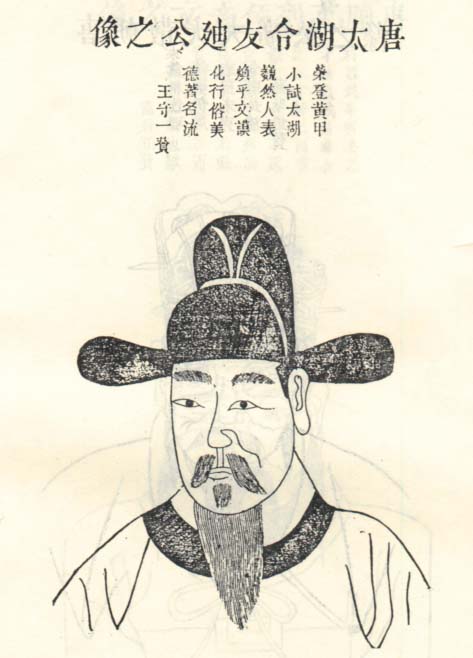 唐太湖令友廸公之像
榮登黄甲
小試太湖
巍然人表
煥乎文謨
化行俗美
德著名流
王守一贊